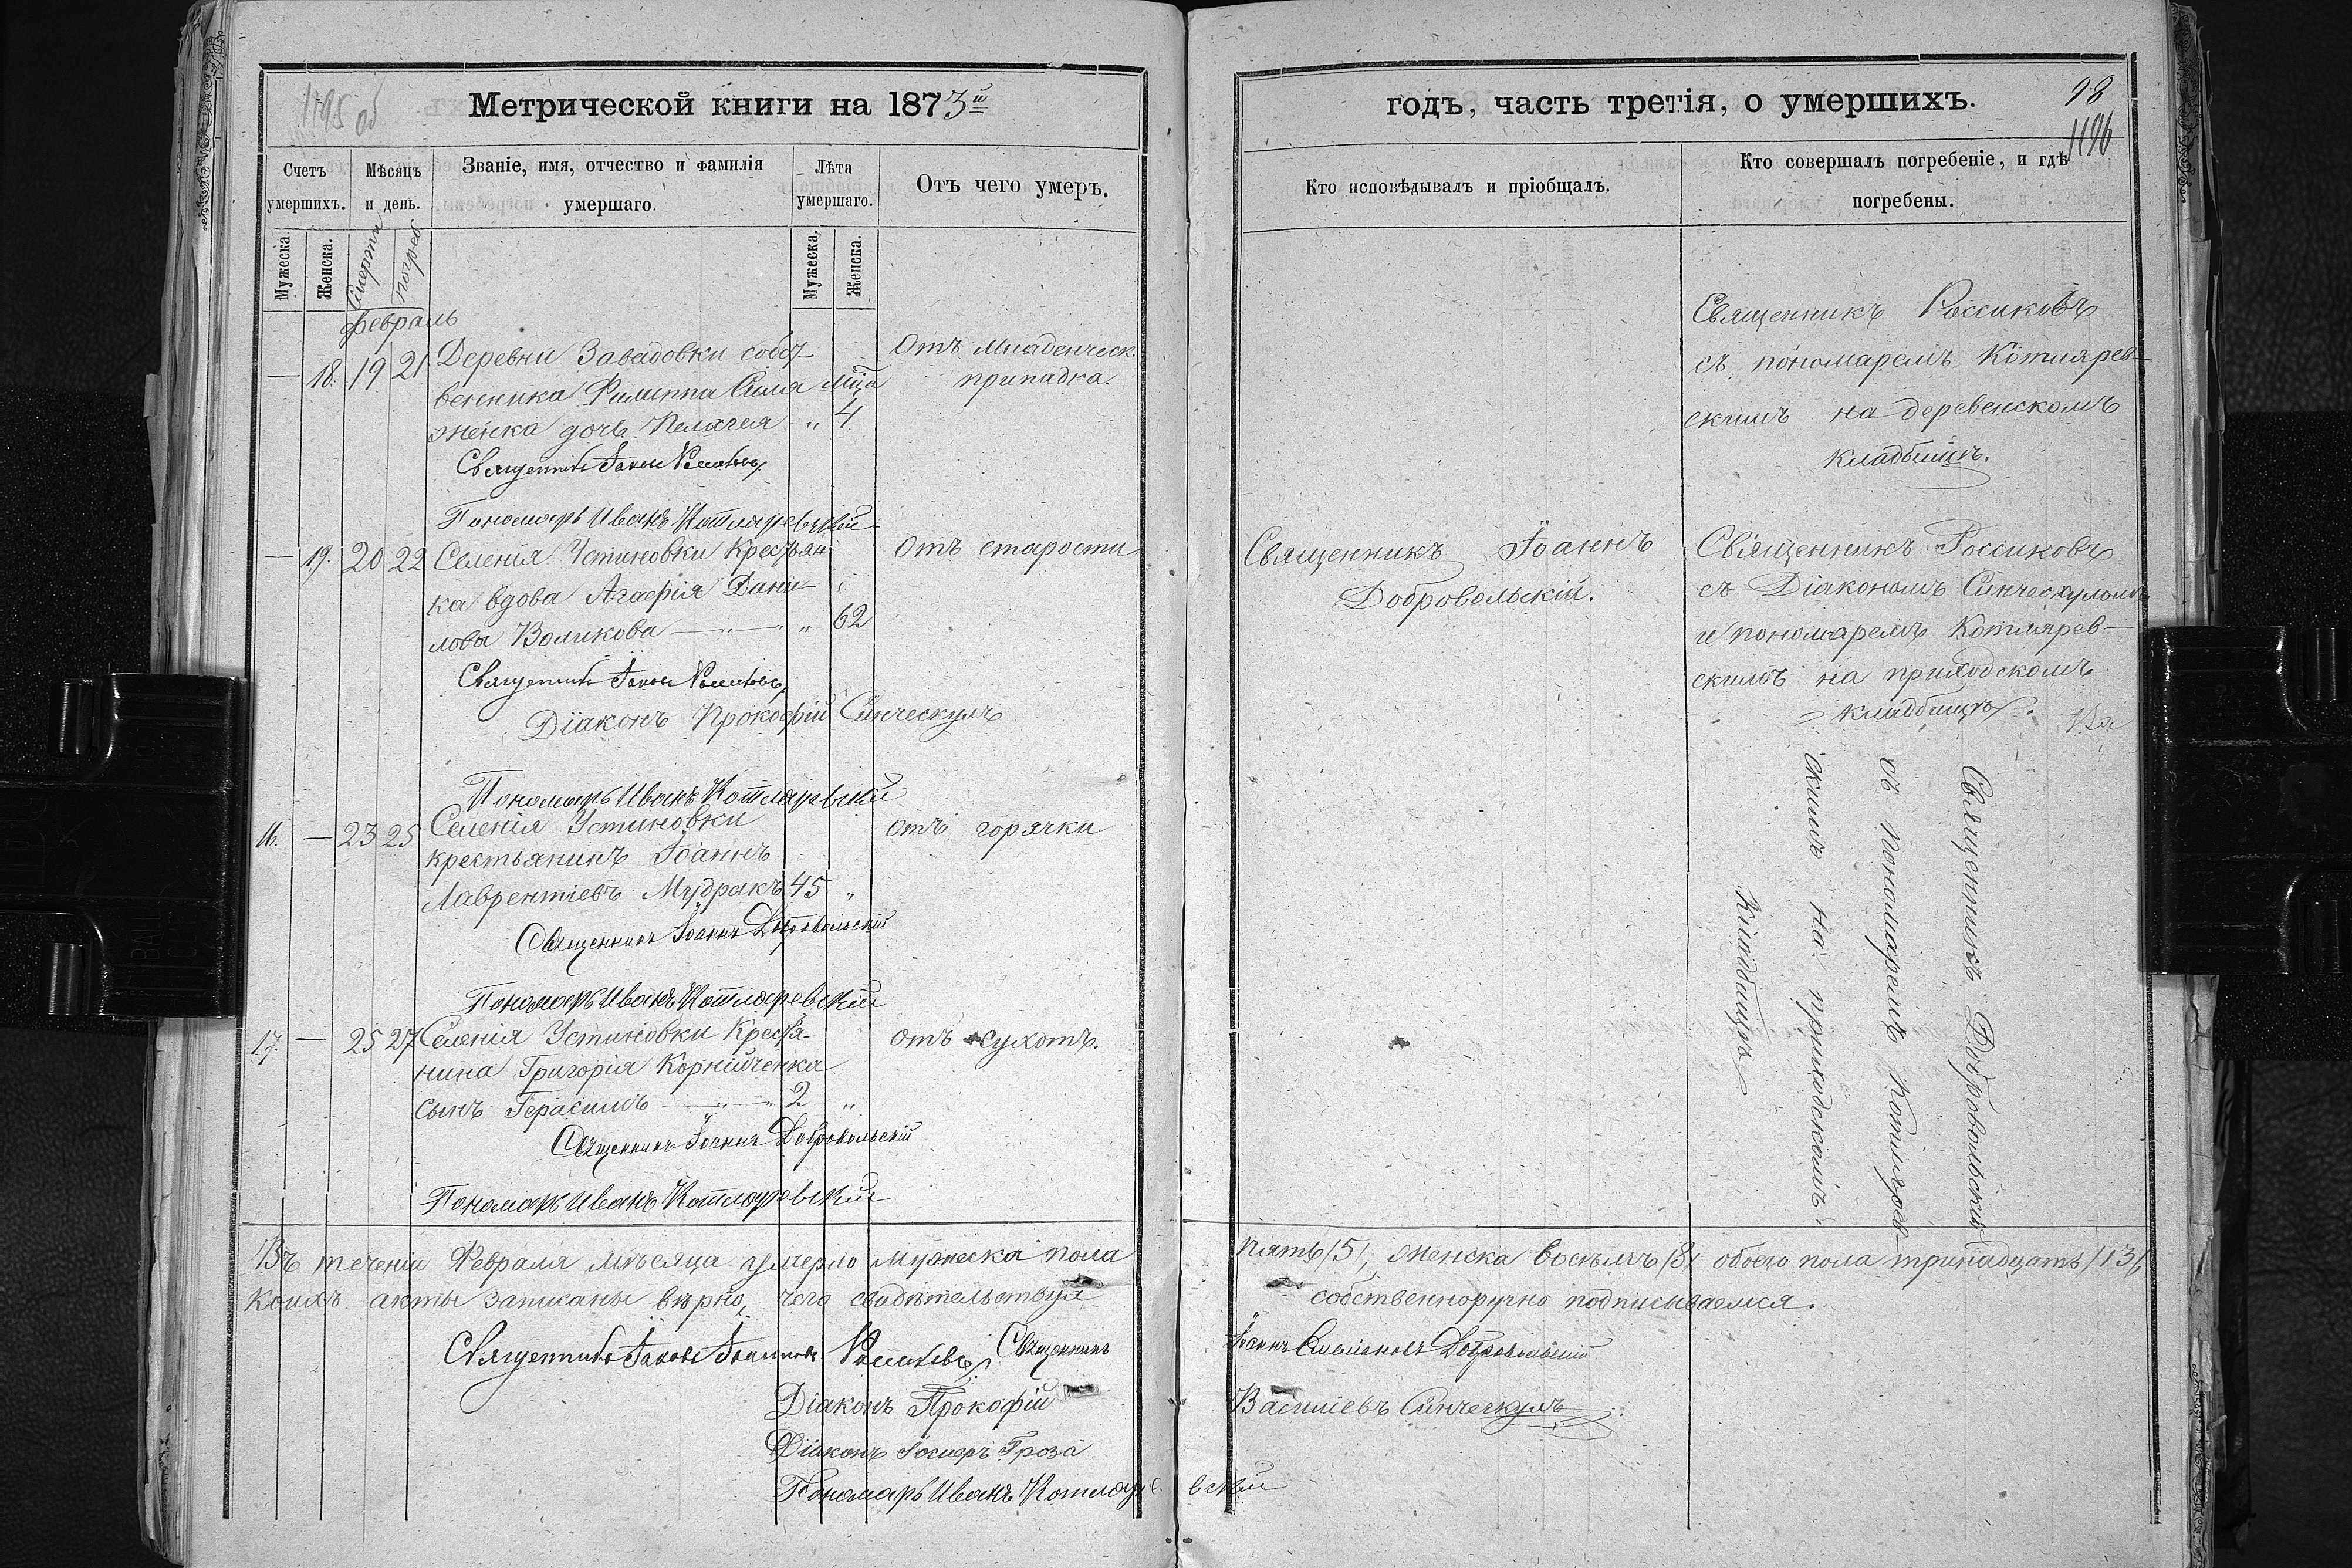 1195 об
Метрической книги на 1873й
Счетъ умершихъ.
Мѣсяцъ и день.
Званіе, имя, отчество и фамилія умершаго.
Лѣта умершаго.
Отъ чего умеръ.
Мужеска
Женска.
Смерти
погреб
Мужеска.
Женска.
февраль
— 18. 19 21 Деревни Завадовки собст
венника Филиппа
женка дочь Пелагея „ 4
мца
Отъ младенческ.
припадка.
Священникъ Іаковъ Россиковъ
Пономарь Иванъ Котляревскій
— 19. 20 22 Селенія Устиновки Крестьян
ка вдова Агафія Дани
лова Воликова „ 62
Отъ старости
Священникъ Іаковъ Россиковъ
Діаконъ Прокофій Синческулъ
Пономарь Иванъ Котляревскій
16. — 23 25 Селенія Устиновки
крестьянинъ Іоаннъ
Лаврентіевъ Мудракъ 45 „
отъ горячки
Священникъ Іоаннъ Добровольскій
Пономарь Иванъ Котляревскій
17. — 25 27 Селенія Устиновки Крестья-
нина Григорія Корнійченка
сынъ Герасимъ 2 „
отъ сухотъ.
Священникъ Іоаннъ Добровольскій
Пономарь Иванъ Котляревскій
Въ теченіи Февраля мѣсяца умерло мужеска пола
коихъ акты записаны вѣрно, чего свидѣтельствуя
Священникъ Іаковъ Россиковъ, Священникъ
Діаконъ Прокофій
Діаконъ Іосифъ Гроза
Пономарь Иванъ Котляре
годъ, часть третія, о умершихъ.
98
1196
Кто исповѣдывалъ и пріобщалъ.
Кто совершалъ погребеніе, и гдѣ
погребены.
Священникъ Россиковъ
съ пономаремъ Котлярев-
скимъ на деревенскомъ
кладбищѣ.
Священникъ Іоаннъ
Добровольскій.
Священникъ Россиковъ
съ Діакономъ Синческуломъ
и пономаремъ Котлярев-
скимъ на приходскомъ
кладбищѣ.
Священникъ Добровольскій
съ пономаремъ Котлярев
скимъ на приходскомъ
Кладбищѣ
пять /5/, женска восемь /8/ обоего пола тринадцать /13/,
собственноручно подписываемся.
Іоаннъ Симеоновъ Добровольскій
Василіевъ Синческулъ
вскій